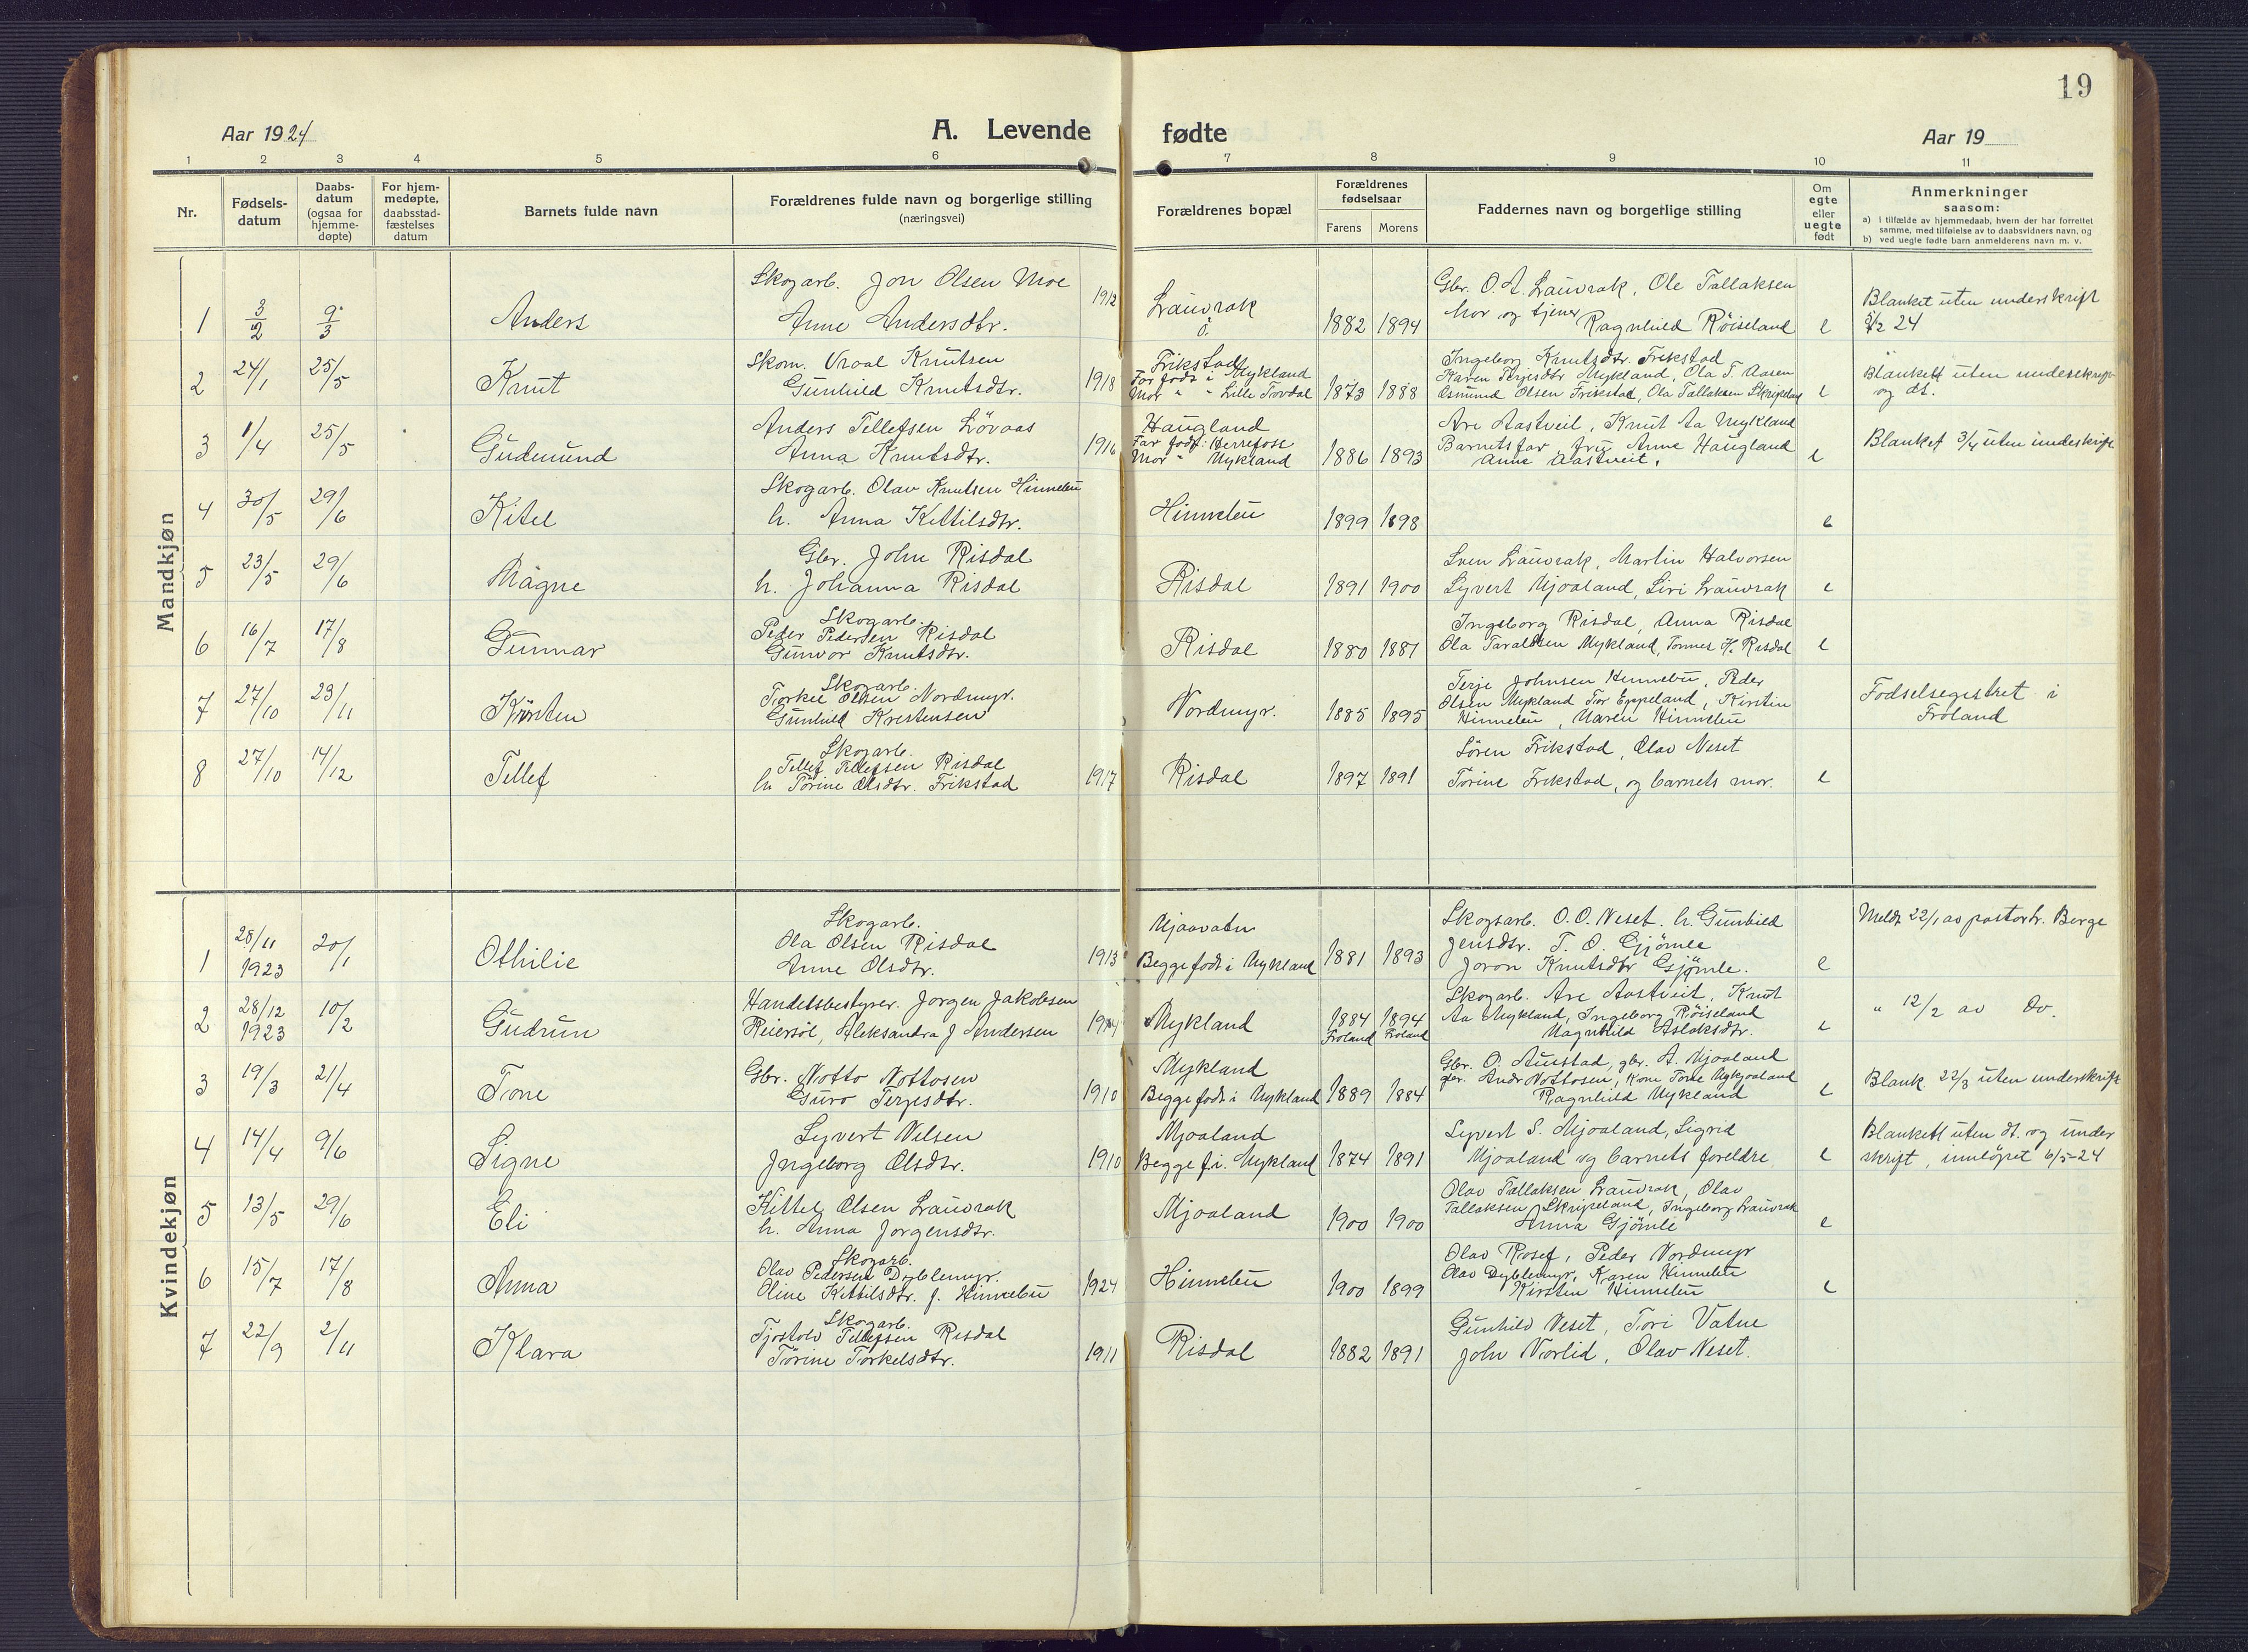 19
Aar 1924
A. Levende
fødte
Aar 19
1 2 3 4 5 6 7 8 9 10 11
Nr.
Fødsels-
datum
Daabs-
datum
(ogsaa for
hjemme-
døpte)
For hjem-
medøpte,
daabsstad-
fæstelses
datum
Barnets fulde navn
Forældrenes fulde navn og borgerlige stilling
(næringsvei)
Forældrenes bopæl
Forældrenes
fødselsaar
Farens Morens
Faddernes navn og borgerlige stilling
Om
egte
eller
uegte
født
Anmerkninger
saasom:
a) i tilfælde av hjemmedaab, hvem der har forrettet
samme, med tilføielse av to daabsvidners navn, og
b) ved uegte fødte barn anmelderens navn m. v.
Mandkjøn
1 3/2 9/3 Anders
Skogarb. Jon Olsen Moe
Anne Andersdtr.
1912
Lauvrak
1882 1894
Gbr. O. A. Lauvrak, Ole Tallaksen
Mor og tjener Ragnhild Röiseland
e
Blanket uten underskrift
24
2 24/1 25/5 Knut
Skom. Vraal Knutsen
Gunhild Knutsdtr.
1918
Frikstad
Far født i Mykland
Mor " " Lille Tovdal
1873 1888
Ingeborg Knutsdtr. Frikstad
Karen Terjesdtr Mykland, Ola T. Aasen
Osmund Olsen Frikstad, Ola Tallaksen Skripeland
e
Blankett uten undeskrift
og dt.
3 1/4 25/5 Gudmund
Anders Tellefsen Lövaas
Anna Knutsdtr.
1916
Haugland
Far født Herrefoss
Mor " Mykland
1886 1893
Are Aastveit, Knut Aa Mykland
Barnetsfar fru Anne Haugland
Anne Aastveit.
e
Blanket 3/4 uten undeskrift
4 30/5 29/6 Kitel
Skogarb. Olav Knutsen Hinnebu
h. Anna Kittilsdtr.
Hinnebu
1899 1898
e
5 23/5 29/6 Magne
Gbr. John Risdal
h. Johanna Risdal
Risdal
1891 1900
Sven Lauvrak, Martin Halvorsen
Syvert Mjoaland, Siri Lauvrak
e
6 16/7 17/8 Gunnar
Skogarb.
Peder Pedersen Risdal
Gunvor Knutsdtr.
Risdal
1880 1881
Ingeborg Risdal, Anna Risdal
Ola Taraldsen Mykland, Tomes H. Risdal
e
7 27/10 23/11 Kirsten
Skogarb.
Torkel Olsen Nordmyr.
Gunhild Kristensen
Nordmyr.
1885 1895
Terje Johnsen Hinnebu, Peder
Olsen Mykland Tor Eppeland, Kirstin
Hinnebu, Maren Hinnebu
Fodselsegistret i
Froland
8 27/10 14/12 Tellef
Skogarb.
Tellef Tellefsen Risdal
h Torine Olsdtr. Frikstad
1917
Risdal
1897 1891
Sören Frikstad, Olav Neset
Torine Frikstad, og barnets mor.
e
Kvindekjøn
1 28/11 1923 20/1 Othilie
Skogarb.
Ola Olsen Risdal
Anne Olsdtr.
1913
Mjaavatn
Begge født i Mykland
1881 1893
Skogsarb. O. O. Neset. h. Gunhild
Jensdtr. T. O. Gjömle
Joron Knutsdtr Gjömle.
e
Meldt 22/1 av pastor tr. Berge
2 28/12 1923 10/2 Gudrun
Handelsbestyrer. Jorgen Jakobsen
Reiersöl, Aleksandra J Andersen
Mykland
1884 1894
Froland Froland
Skogarb. Are Aastveit, Knut
Aa Mykland, Ingeborg Röiseland
Magnhild Aslaksdtr.
e
" 12/2 av Do.
3 19/3 21/4 Tone
Gbr. Notto Nottosen
Guro Terjesdtr.
1910
Mykland
Begge født i Mykland
1889 1884
Gbr. O. Austad, gbr. A. Mjoaland
gbr. Andr Nottosen, Kone Tone
Ragnhild Mykland
e
Blank 22/3 uten underskrift
4 14/4 9/6 Signe
Syvert Nilsen
Ingeborg Olsdtr.
1910
Mjoaland
Begge f. i. Mykland
1874 1891
Syvert S. Mjoaland, Sigrid
Mjoaland og barnets foreldre
e
Blankett uten dt. og under
skrift, innlöpet 6/5-24
5 13/5 29/6 Eli
Kittel Olsen Lauvrak
h. Anna Jorgensdtr.
Mjoaland
1900 1900
Olav Tallaksen Lauvrak, Olav
Tallaksen Skripeland, Ingeborg Lauvrak
Anna Gjömle
e
6 15/7 17/8 Anna
Skogarb.
Olav Pedersen Dyblemyr.
Oline Kittilsdtr. f. Hinnebu
1924
Hinnebu
1900 1899
Olav Rosef, Peder Nordmyr
Olav Dyblemyr, Karen Hinnebu
Kirsten Hinnebu
e
7 22/9 2/11 Klara
Skogarb.
Tjostolv Tellefsen Risdal
Torine Torkelsdtr.
1911
Risdal
1882 1891
Gunhild Neset, Tori Vatne
John Norlid, Olav Neset.